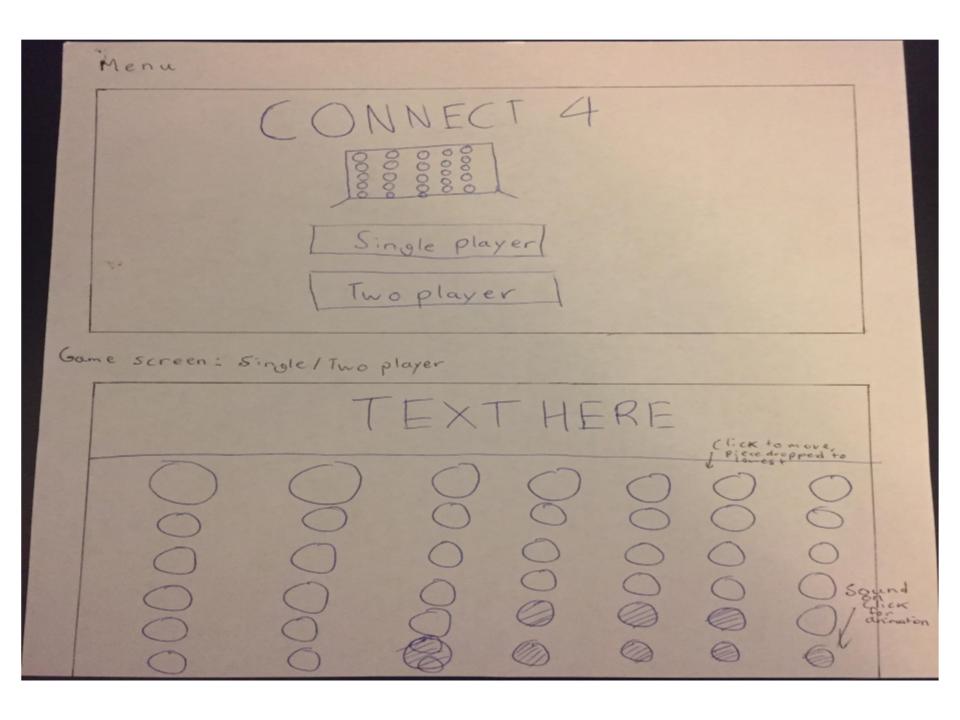 Menu
CONNECT 4
Single player
Two player
Game screen: Single/Two player
TEXT HERE
Click to move,
Piece dropped to
lowest
Sound
on
click
for
animation